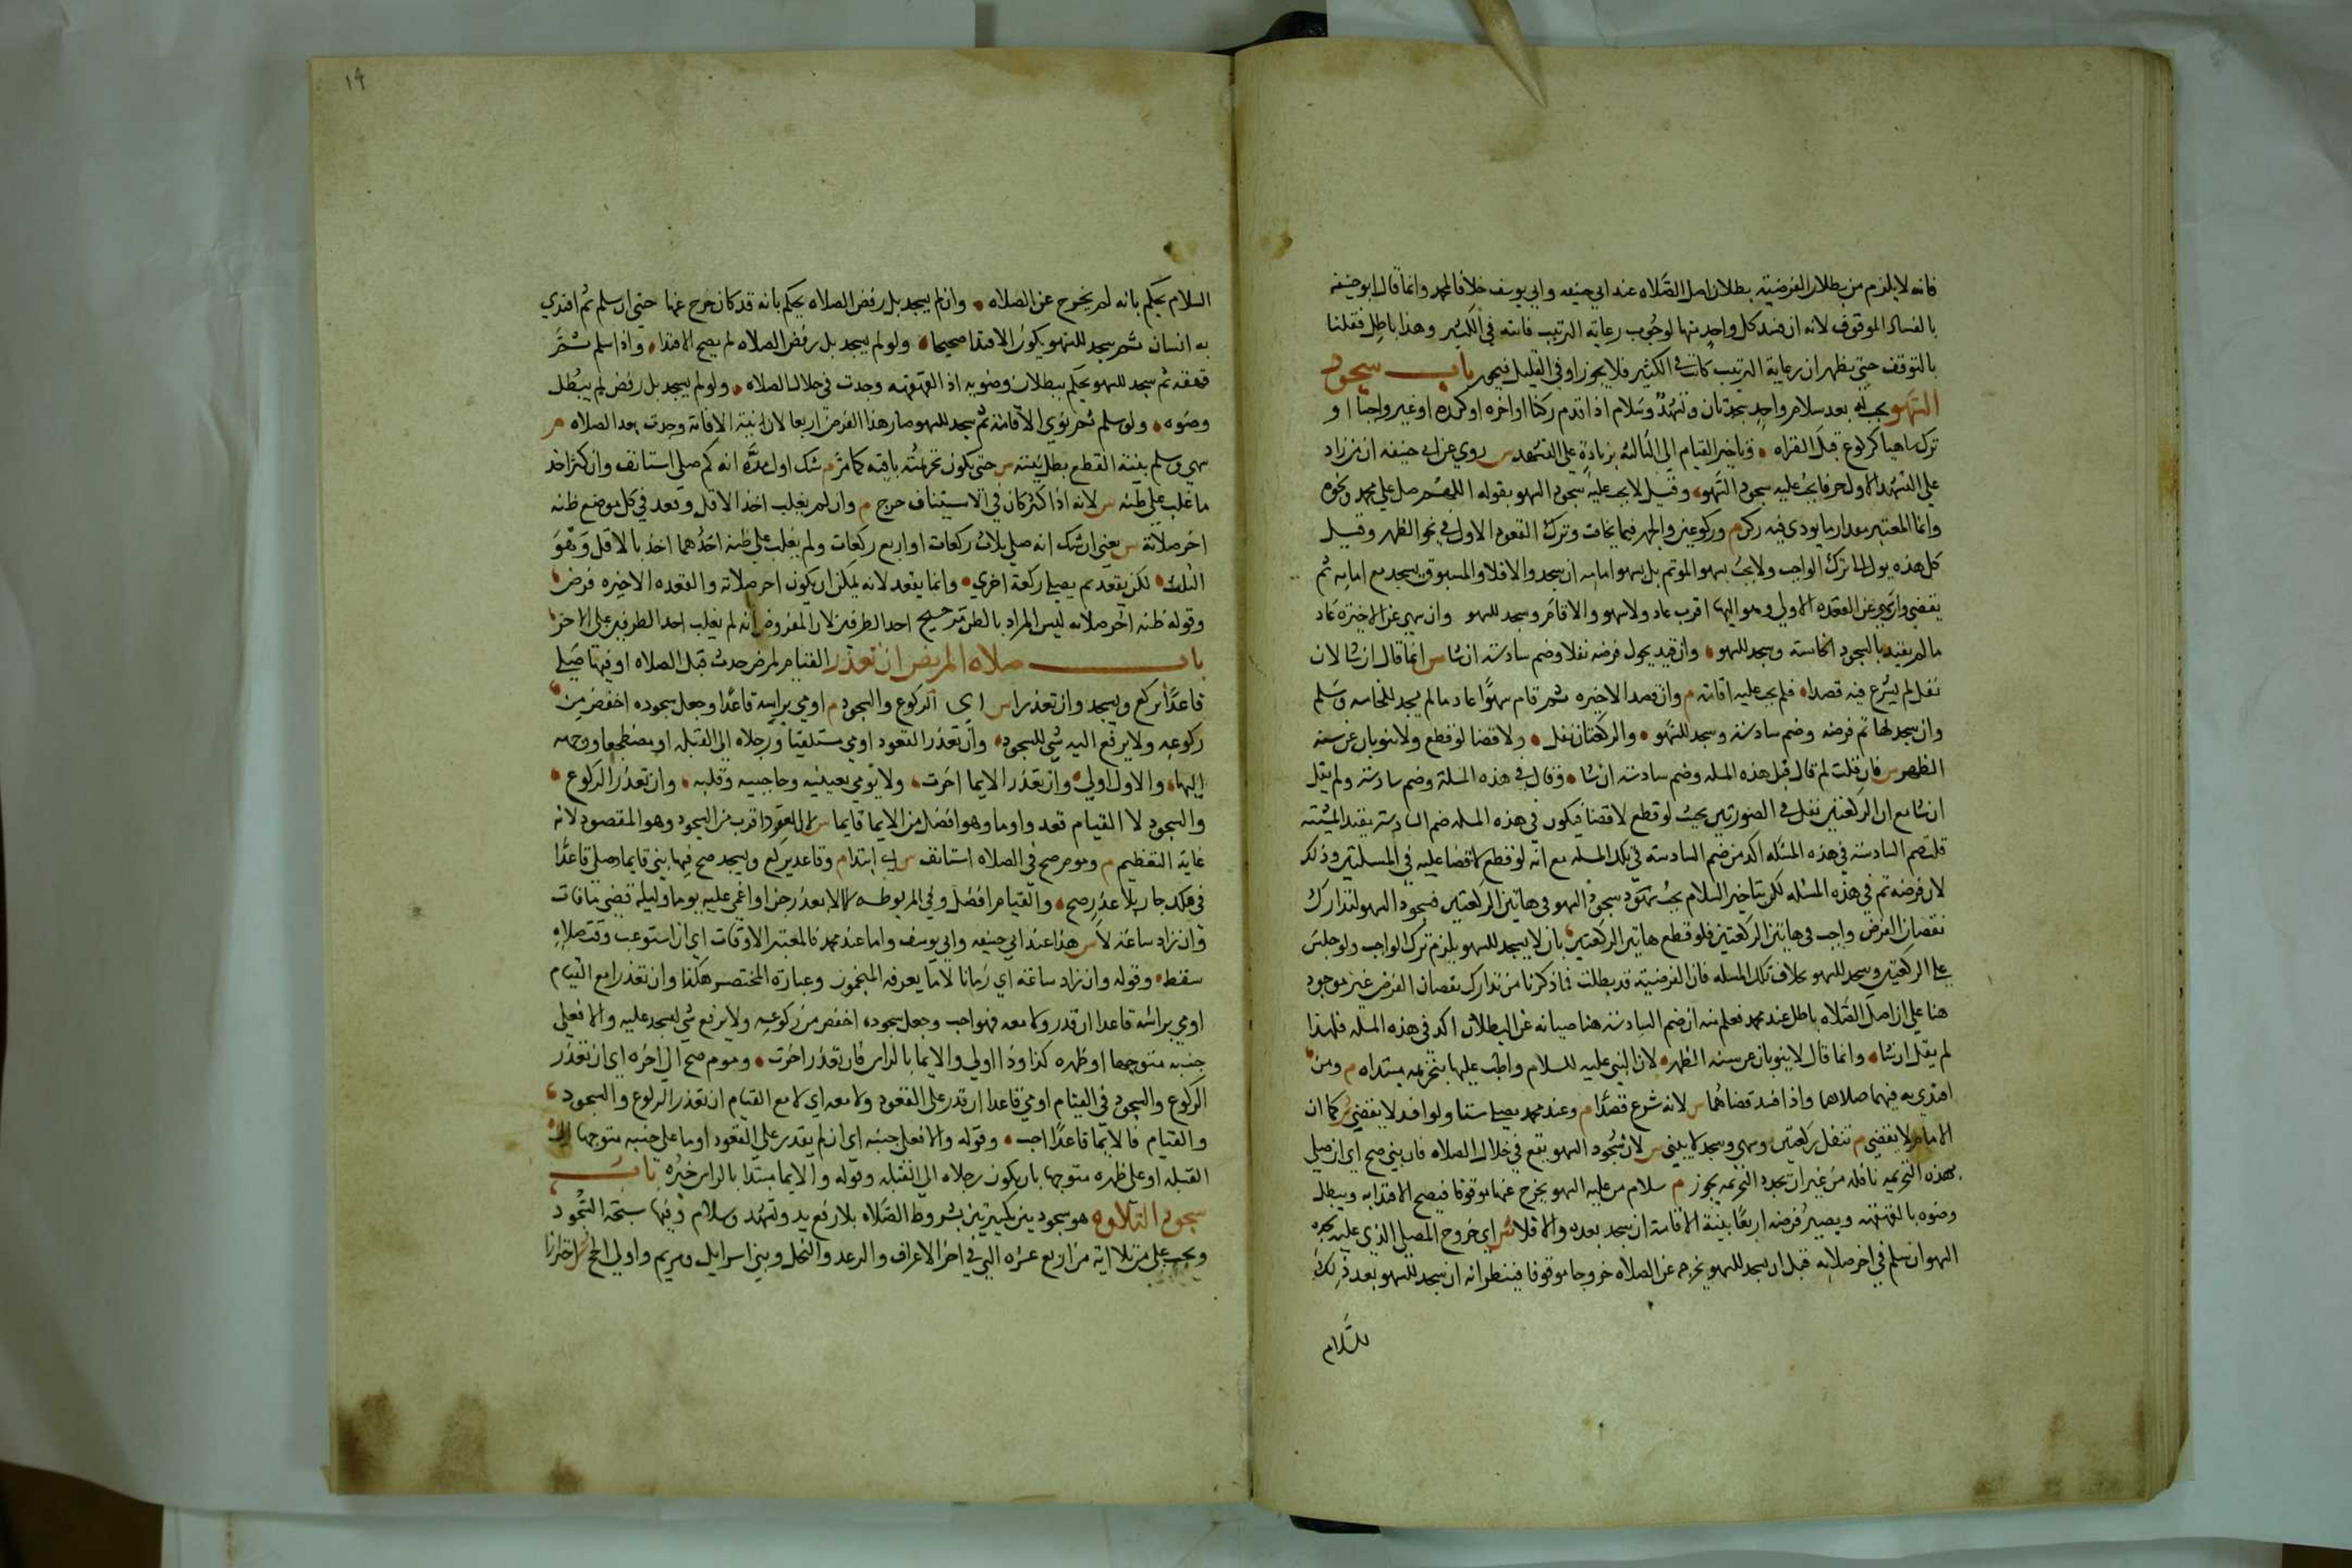 فانه لا يلزم من بطلان الفرضية بطلان اصل الصلاه عند ابي حنيفه وابي يوسف خلافا لمحمد وانما قال ابو حنيفه
بالفساد الموقوف لانه ان فسد كل واحد منها لوجوب رعاية الترتيب فاسته في الكثير وهذا باطل فقلنا
بالتوقف حتى يظهر ان رعاية الترتيب كانت في الكثير فلا يجوز او في القليل فيجوز باب سجود
السهو يجب له بعد سلام واحد سجدتان وتشهد وسلام اذا قدم ركنا او اخره او كرره او غير واجبا او
ترك ساهيا كركوع قبل القراه وتاخير القيام الى الثالثة بزيادة على التشهد س روي عن ابي حنيفه ان من زاد
على التشهد الاول حرفا يجب عليه سجود السهو وقيل لا يجب عليه سجود السهو بقوله اللهم صل على محمد ونحوه
وانما المعتبر مقدار ما يودى فيه ركن م وركوعين والجهر فيما يخافت وترك القعود الاول في نحو الظهر وقيل
كل هذه يول الى ترك الواجب ولا يجب بسهو الموتم بل بسهو امامه ان سجد والا فلا والمسبوق يسجد مع امامه ثم
يقضي وان سهى عن القعده الاولى وهو اليها اقرب عاد ولا سهو والا قام وسجد للسهو وان سهى عن الاخيرة عاد
ما لم يقيد بالسجود الخامسة وسجد للسهو وان قيد يحول فرضه نفلا وضم سادسة ان شا س انما قال ان شا لان
نفل لم يشرع فيه قصدا فلم يجب عليه اتمامه م وان قعد الاخيره ثم قام سهوا عاد ما لم يسجد للخامسه وسلم
وان سجد لها تم فرضه وضم سادسة وسجد للسهو والركعتان نفل ولا قضا لو قطع ولا ينوبان عن سنة
الظهر س فان قلت لم قال قبل هذه المسله وضم سادسة ان شا وقال في هذه المسلة وضم سادسة ولم يقل
ان شا مع ان الركعتين نفل في الصورتين بحيث لو قطع لا قضا فيكون في هذه المسله ضم السادسة بقيد المشيئة
قلت ضم السادسة في هذه المسئله اكد من ضم السادسه في تلك المسله مع انه لو قطع لا قضا عليه في المسئلتين وذلك
لان فرضه تم في هذه المسئله لكن بتاخير السلام يجب سجود السهو في هاتين الركعتين فسجود السهو لتدارك
نقصان الفرض واجب في هاتين الركعتين فلو قطع هاتين الركعتين بان لا يسجد للسهو يلزم ترك الواجب ولو جلس
على الركعتين وسجد للسهو بخلاف تلك المسله فان الفرضية قد بطلت فما ذكرنا من تدارك نقصان الفرض غير موجود
هنا على ان اصل الصلاه باطل عند محمد فعلم منه ان ضم السادسة هنا صيانه عن البطلان اكد في هذه المسله فلهذا
لم يقل ان شا وانما قال لا ينوبان عن سنه الظهر لان النبي عليه السلام واظب عليها بتحريمه مبتداه م ومن
اقتدى به فيهما صلاهما واذا افسد قضاهما س لانه شرع قصدا م وعند محمد يصلي ستا ولو افسد لا يقضي س كما ان
الامام لا يقضي م تنفل ركعتين وسهى وسجد لا يبني س لان سجود السهو يقع في خلال الصلاه فان بنى صح اي ان صلى
بهذه التحريمه نافله من غير ان تجدد التحريمه يجوز م سلام من عليه السهو يخرج عنها موقوفا فيصح الاقتدا به ويبطل
وضوه بالقهقهة ويصير فرضه اربعا بنية الاقامة ان سجد بعده والا فلا س اي خروج المصلي الذي عليه سجده
السهو ان سلم في اخر صلاته قبل ان يسجد للسهو يخرجه عن الصلاه خروجا موقوفا فينظر انه ان سجد للسهو بعد ذلك
السلام
١٩
السلام يحكم بانه لم يخرج عن الصلاه وان لم يسجد بل رفض الصلاه يحكم بانه قد كان خرج عنها حتى ان سلم ثم اقتدي
به انسان ثم سجد للسهو يكون الاقتدا صحيحا ولو لم يسجد بل رفض الصلاه لم يصح الاقتدا واذا سلم ثم
قهقه ثم سجد للسهو يحكم ببطلان وضويه اذ القهقهه وجدت في خلال الصلاه ولو لم يسجد بل رفض لم يبطل
وضوه ولو سلم ثم نوي الاقامة ثم سجد للسهو صار هذا الفرض اربعا لان نية الاقامة وجدت بعد الصلاه م
سهى وسلم بنية القطع بطل نيته س حتى يكون تحريمته باقيه كما مر م شك اول مره انه كم صلى استانف وان كثر اخذ
ما غلب على ظنه س لانه اذا كثر كان في الاستيناف حرج م وان لم يغلب اخذ الاقل وقعد في كل موضع ظنه
اخر صلاته س يعني ان شك انه صلى ثلاث ركعات او اربع ركعات ولم يغلب على ظنه احدهما اخذ بالاقل وهو
الثلث لكن يقعد ثم يصلي ركعة اخري وانما يقعد لانه يمكن ان يكون اخر صلاته والقعده الاخيره فرض
وقوله ظنه اخر صلاته ليس المراد بالظن ترجيح احد الطرفين لان المفروض انه لم يغلب احد الطرفين على الاخر
باب صلاه المريض ان تعذر القيام لمرض حدث قبل الصلاه او فيها صلي
قاعدا يركع ويسجد وان تعذرا س اي الركوع والسجود م اومى براسه قاعدا وجعل سجوده اخفض من
ركوعه ولا يرفع اليه شي للسجود وان تعذر القعود اومى مستلقيا ورجلاه الى القبله او مضطجعا ووجهه
اليها والاول اولى وان تعذر الايما اخرت ولا يومي بعينيه وحاجبيه وقلبه وان تعذر الركوع
والسجود لا القيام قعد واوما وهو افضل من الايما قايما س لان القعود اقرب من السجود وهو المقصود لانه
غاية التعظيم م ومومى صح في الصلاه استانف س اي ابتدا م وقاعد يركع ويسجد صح فيها بنى قايما وصلى قاعدا
في فلك جار بلا عذر صح والقيام افضل وفي المربوطه لا الا بعذر جن او اغمى عليه يوما وليلة قضى ما فات
وان زاد ساعة لا س هذا عند ابي حنيفه وابي يوسف واما عند محمد فالمعتبر الاوقات اي ان استوعب وقت صلاه
سقط وقوله وان زاد ساعة اي زمانا لا ما يعرفه المنجمون وعبارة المختصر هكذا وان تعذرا مع القيام
اومى براسه قاعدا ان قدر ولا معه فهو احب وجعل سجوده اخفض من ركوعه ولا يرفع شي ليسجد عليه والا فعلى
جنبه متوجها او ظهره كذا وذا اولي والايما بالراس فان تعذر اخرت ومومي صح الى اخره اي ان تعذر
الركوع والسجود في القيام اومى قاعدا ان قدر على القعود ولا معه اي لا مع القيام ان تعذر الركوع والسجود
والقيام فالايما قاعدا احب وقوله والا فعلى جنبه اي ان لم يقدر على القعود اوما على جنبه متوجها الى
القبله او على ظهره متوجها بان يكون رجلاه الى القبله وقوله والايما مبتدا بالراس خبره باب
سجود التلاوه هو سجود بين تكبيرتين بشروط الصلاه بلا رفع يد وتشهد وسلام وفيها سبحة السجود
ويجب على من تلا اية من اربع عشره التي في اخر الاعراف والرعد والنحل وبني اسرايل ومريم واولى الحج س احترازا